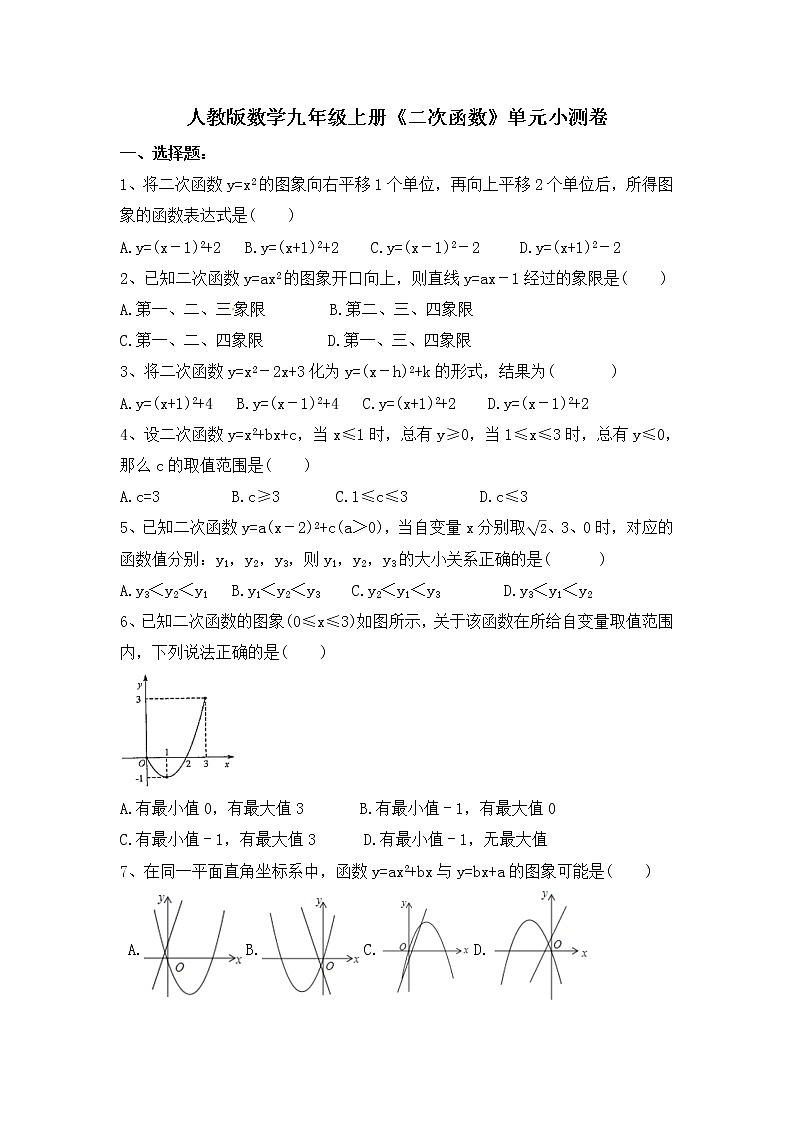 人教版数学九年级上册《二次函数》单元小测卷
一、选择题：
1、将二次函数y=x²的图象向右平移1个单位，再向上平移2个单位后，所得图
象的函数表达式是(　　)
A.y=(x－1)²+2　B.y=(x+1)²+2　C.y=(x－1)²－2　D.y=(x+1)²－2
2、已知二次函数y=ax²的图象开口向上，则直线y=ax－1经过的象限是(　　)
A.第一、二、三象限　B.第二、三、四象限
C.第一、二、四象限　D.第一、三、四象限
3、将二次函数y=x²－2x+3化为y=(x－h)²+k的形式，结果为(　　)
A.y=(x+1)²+4　B.y=(x－1)²+4　C.y=(x+1)²+2　D.y=(x－1)²+2
4、设二次函数y=x²+bx+c，当x≤1时，总有y≥0，当1≤x≤3时，总有y≤0，
那么c的取值范围是(　　)
A.c=3　B.c≥3　C.1≤c≤3　D.c≤3
5、已知二次函数y=a(x－2)²+c(a＞0)，当自变量x分别取√2、3、0时，对应的
函数值分别：y₁，y₂，y₃，则y₁，y₂，y₃的大小关系正确的是(　　)
A.y₃＜y₂＜y₁　B.y₁＜y₂＜y₃　C.y₂＜y₁＜y₃　D.y₃＜y₁＜y₂
6、已知二次函数的图象(0≤x≤3)如图所示，关于该函数在所给自变量取值范围
内，下列说法正确的是(　　)
y
3
1
O 2 3 x
-1
A.有最小值0，有最大值3　B.有最小值﹣1，有最大值0
C.有最小值﹣1，有最大值3　D.有最小值﹣1，无最大值
7、在同一平面直角坐标系中，函数y=ax²+bx与y=bx+a的图象可能是(　　)
y y y y
A. O x B. O x C. O x D. O x